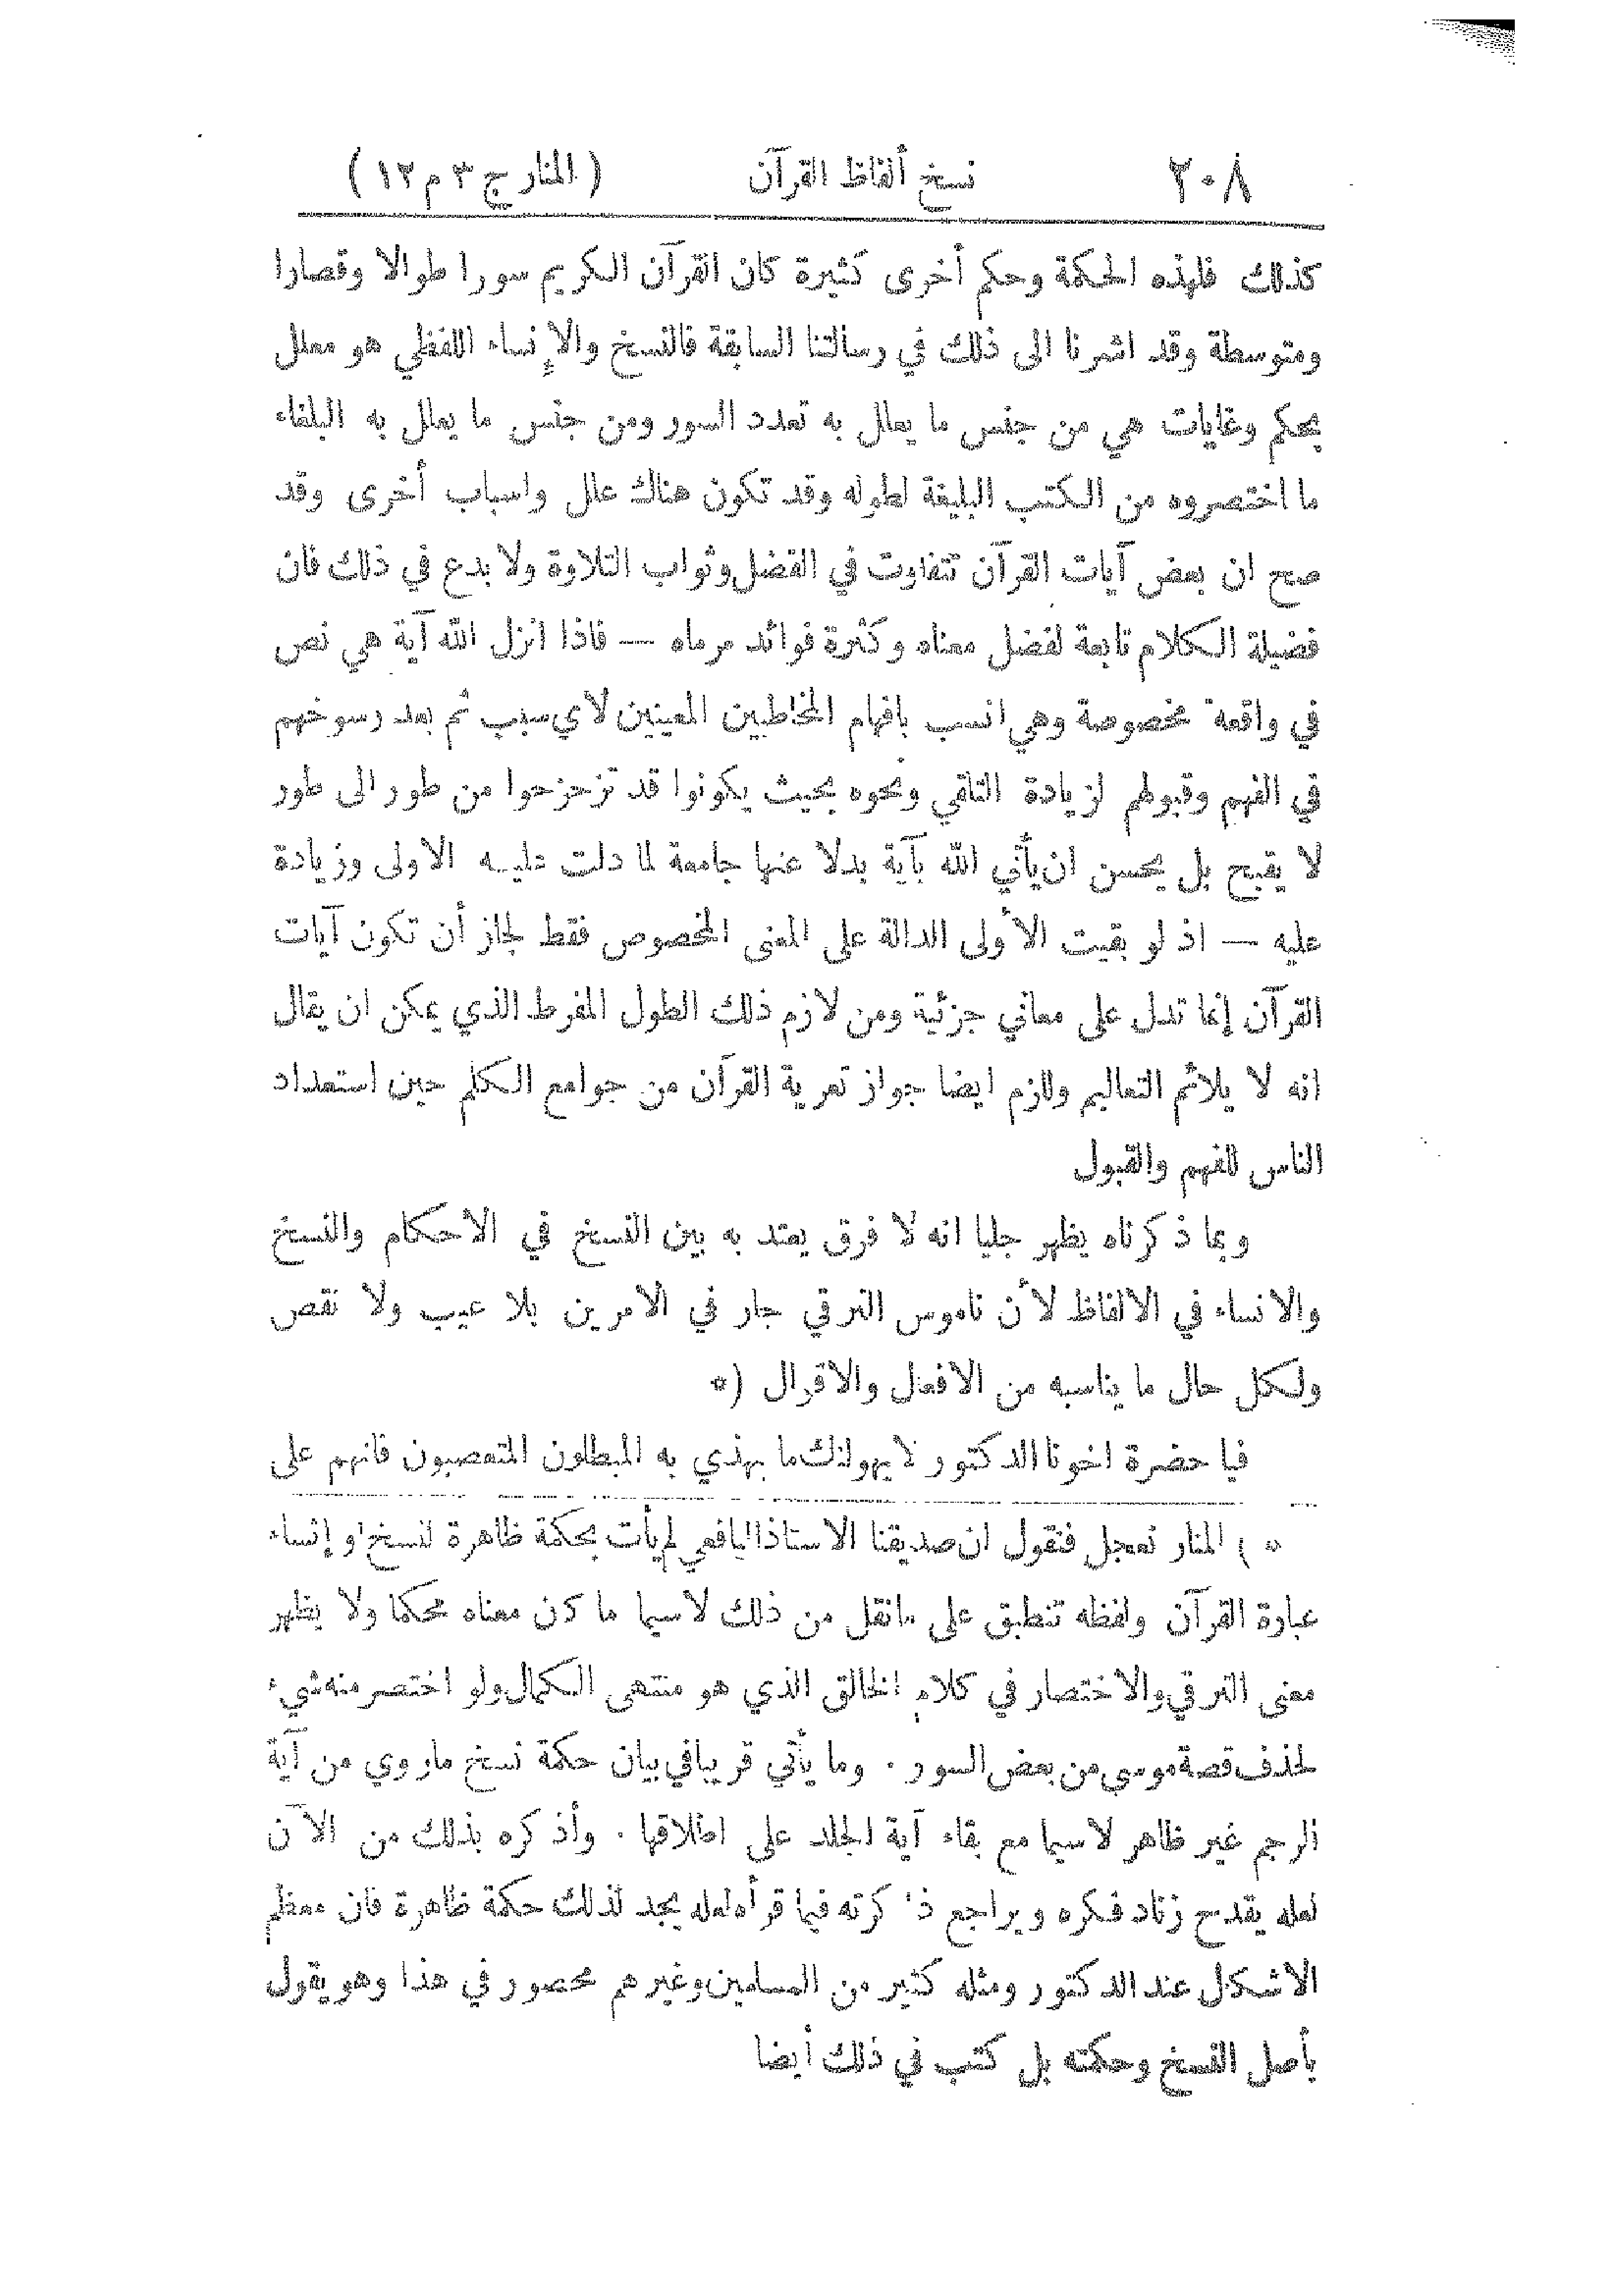 ٢٠٨ نسخ ألفاظ القرآن ( المنار ج ٣ م ١٢ )
كذلك فلهذه الحكمة وحكم أخرى كثيرة كان القرآن الكريم سورا طوالا وقصارا
ومتوسطة وقد اشرنا الى ذلك في رسالتنا السابقة فالنسخ والإنساء اللفظي هو معلل
بحكم وغايات هي من جنس ما يعلل به تعدد السور ومن جنس ما يعلل به البلغاء
ما اختصروه من الكتب البليغة لطوله وقد تكون هناك علل واسباب أخرى وقد
صح ان بعض آيات القرآن تتفاوت في الفضل وثواب التلاوة ولا بدع في ذلك فان
فضيلة الكلام تابعة لفضل معناه وكثرة فوائد مرماه — فاذا انزل الله آية هي نص
في واقعة مخصوصة وهي انسب بافهام المخاطبين المعينين لاي سبب ثم بعد رسوخهم
في الفهم وقبولهم لزيادة التلقي ونحوه بحيث يكونوا قد تزحزحوا من طور الى طور
لا يقبح بل يحسن ان يأتي الله بآية بدلا عنها جامعة لما دلت عليه الاولى وزيادة
عليه — اذ لو بقيت الأولى الدالة على المعنى المخصوص فقط لجاز أن تكون آيات
القرآن إنما تدل على معاني جزئية ومن لازم ذلك الطول المفرط الذي يمكن ان يقال
انه لا يلائم التعاليم ولازم ايضا جواز تعرية القرآن من جوامع الكلم حين استعداد
الناس للفهم والقبول
وبما ذكرناه يظهر جليا انه لا فرق يعتد به بين النسخ في الاحكام والنسخ
والانساء في الالفاظ لأن ناموس الترقي جار في الامرين بلا عيب ولا نقص
ولكل حال ما يناسبه من الافعال والاقوال (*
فيا حضرة اخونا الدكتور لا يهولنك ما يهذي به المبطلون المتعصبون فانهم على
* ) المنار نعجل فنقول ان صديقنا الاستاذ اليافعي لم يأت بحكمة ظاهرة لنسخ او إنساء
عبارة القرآن ولفظه تنطبق على مانقل من ذلك لاسيما ما كان معناه محكما ولا يظهر
معنى الترقي والاختصار في كلام الخالق الذي هو منتهى الكمال ولو اختصر منه شيء
لحذف قصة موسى من بعض السور . وما يأتي قريبا في بيان حكمة نسخ ماروي من آية
الرجم غير ظاهر لاسيما مع بقاء آية الجلد على اطلاقها . وأذكره بذلك من الآن
لعله يقدح زناد فكره ويراجع ذاكرته فيما قرأه لعله يجد لذلك حكمة ظاهرة فان معظم
الاشكال عند الدكتور ومثله كثير من المسلمين وغيرهم محصور في هذا وهو يقول
بأصل النسخ وحكمته بل كتب في ذلك أيضا